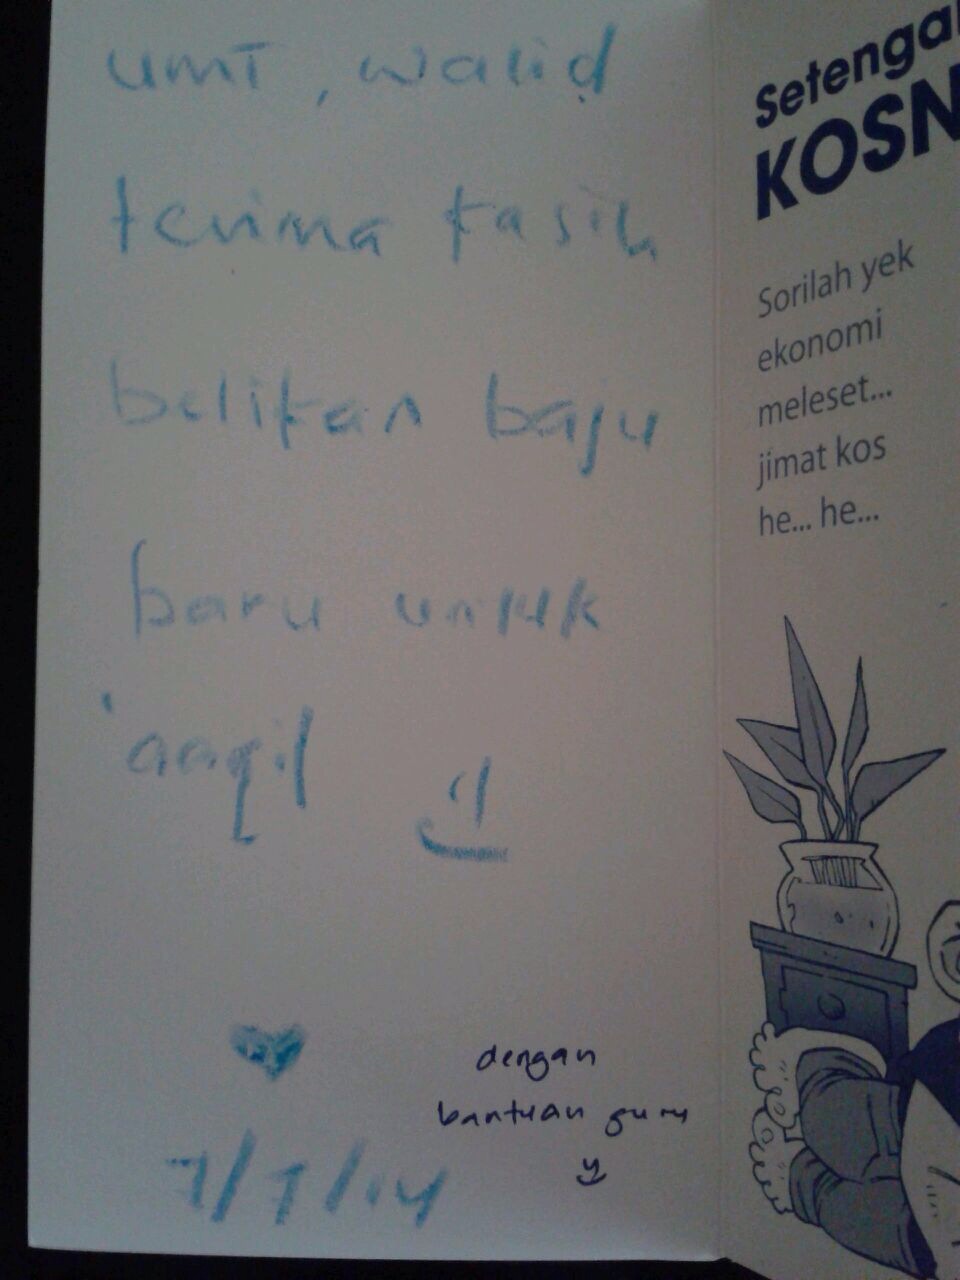 umi, walid
terima kasih
belikan baju
baru untuk
'aaqil
7/7/14
dengan
bantuan guru
Setengah
KOSN
Sorilah yek
ekonomi
meleset...
jimat kos
he... he...